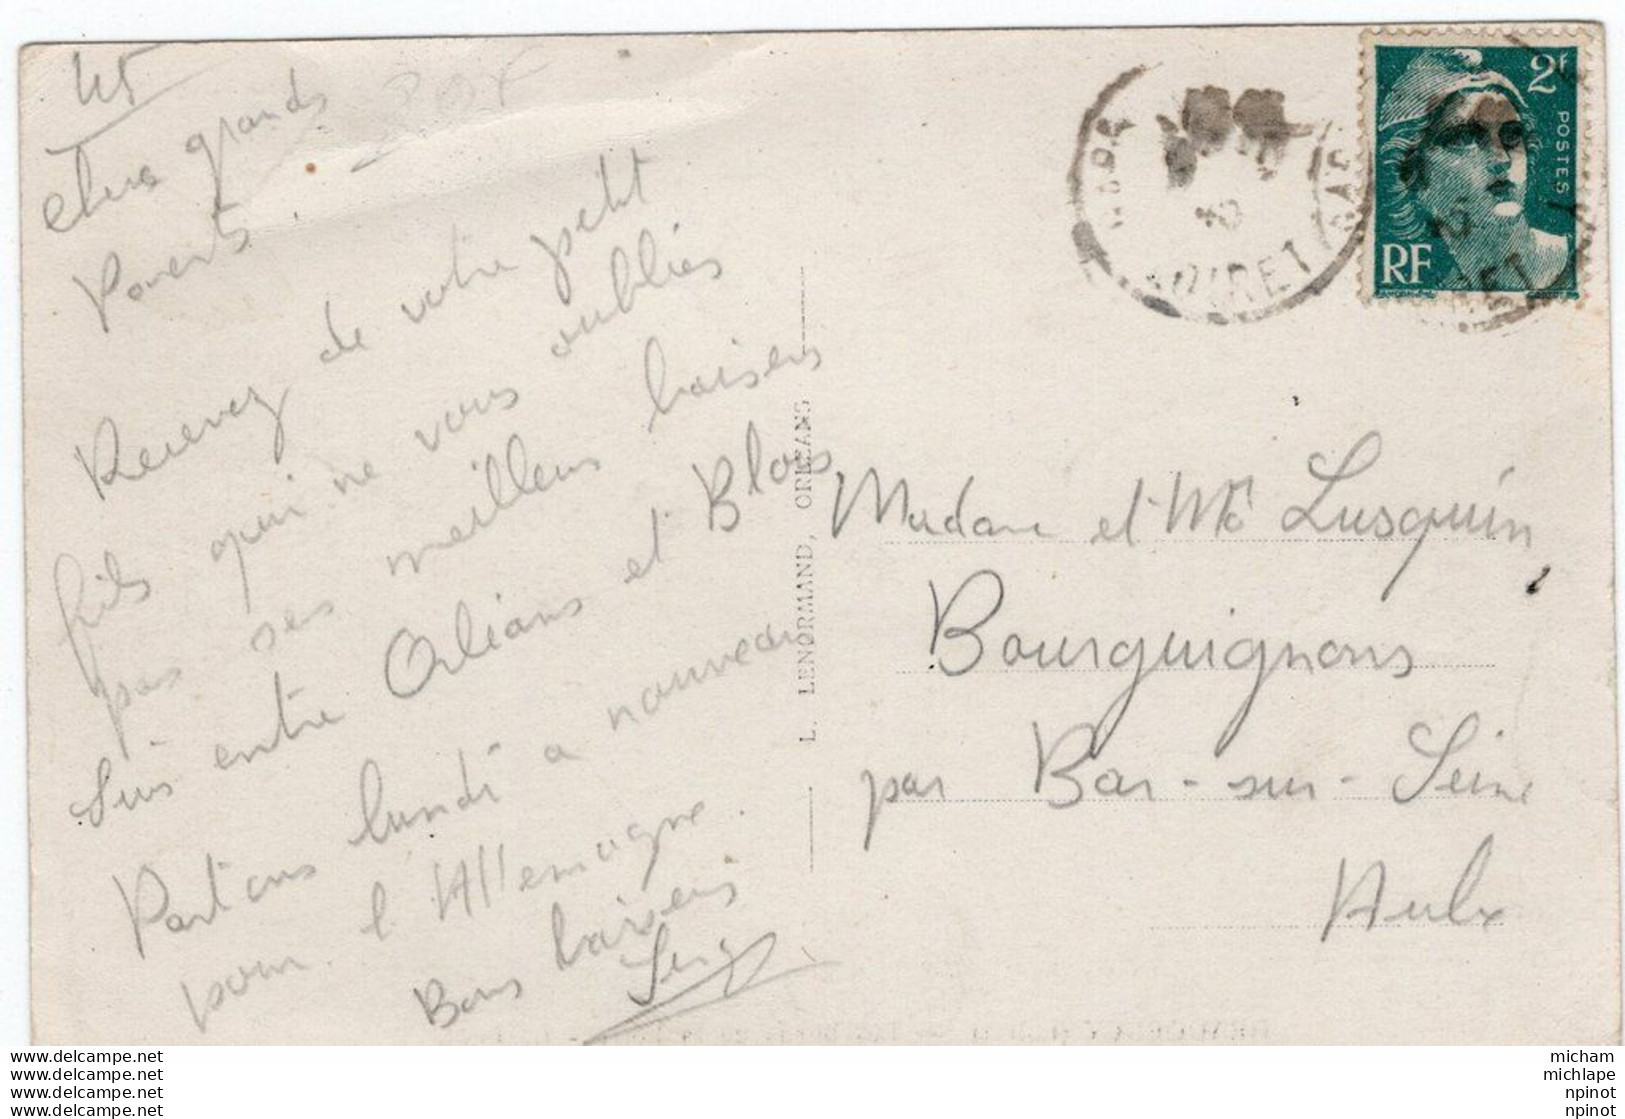 45
Chers grands
Parents.
Recevez de votre petit
fils qui ne vous oublies
pas ses meilleurs baisers
Suis entre Orléans et Blois
Partons lundi a nouveau
pour l'Allemagne.
Bons baisers
Serge
L. LENORMAND, ORLEANS
2f
POSTES
RF
LOIRET
LOIRET
Madame et Mr Lusquin
Bourguignons
par Bar-sur-Seine
Aube
delcampe.net
delcampe.net
delcampe.net
delcampe.net
micham
michlape
npinot
npinot